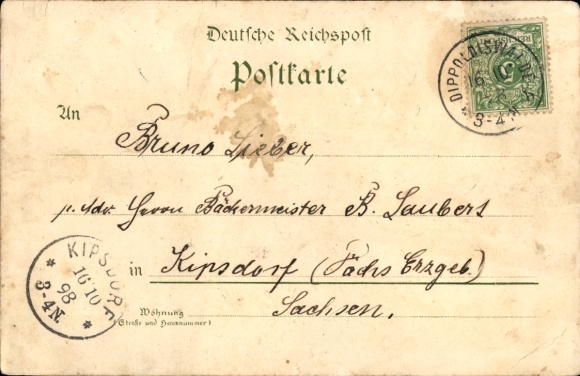 Deutsche Reichspost
Postkarte
DIPPOLDISWALDE
16 10
* 3-4 N
An
Bruno Lieber,
p. Adr. Herrn Bäckermeister B. Lauberts
KIPSDORF
16 10
98
* 3-4N. *
in Kipsdorf (Sächs Erzgeb.)
Sachsen.
Wohnung
(Straße und Hausnummer)